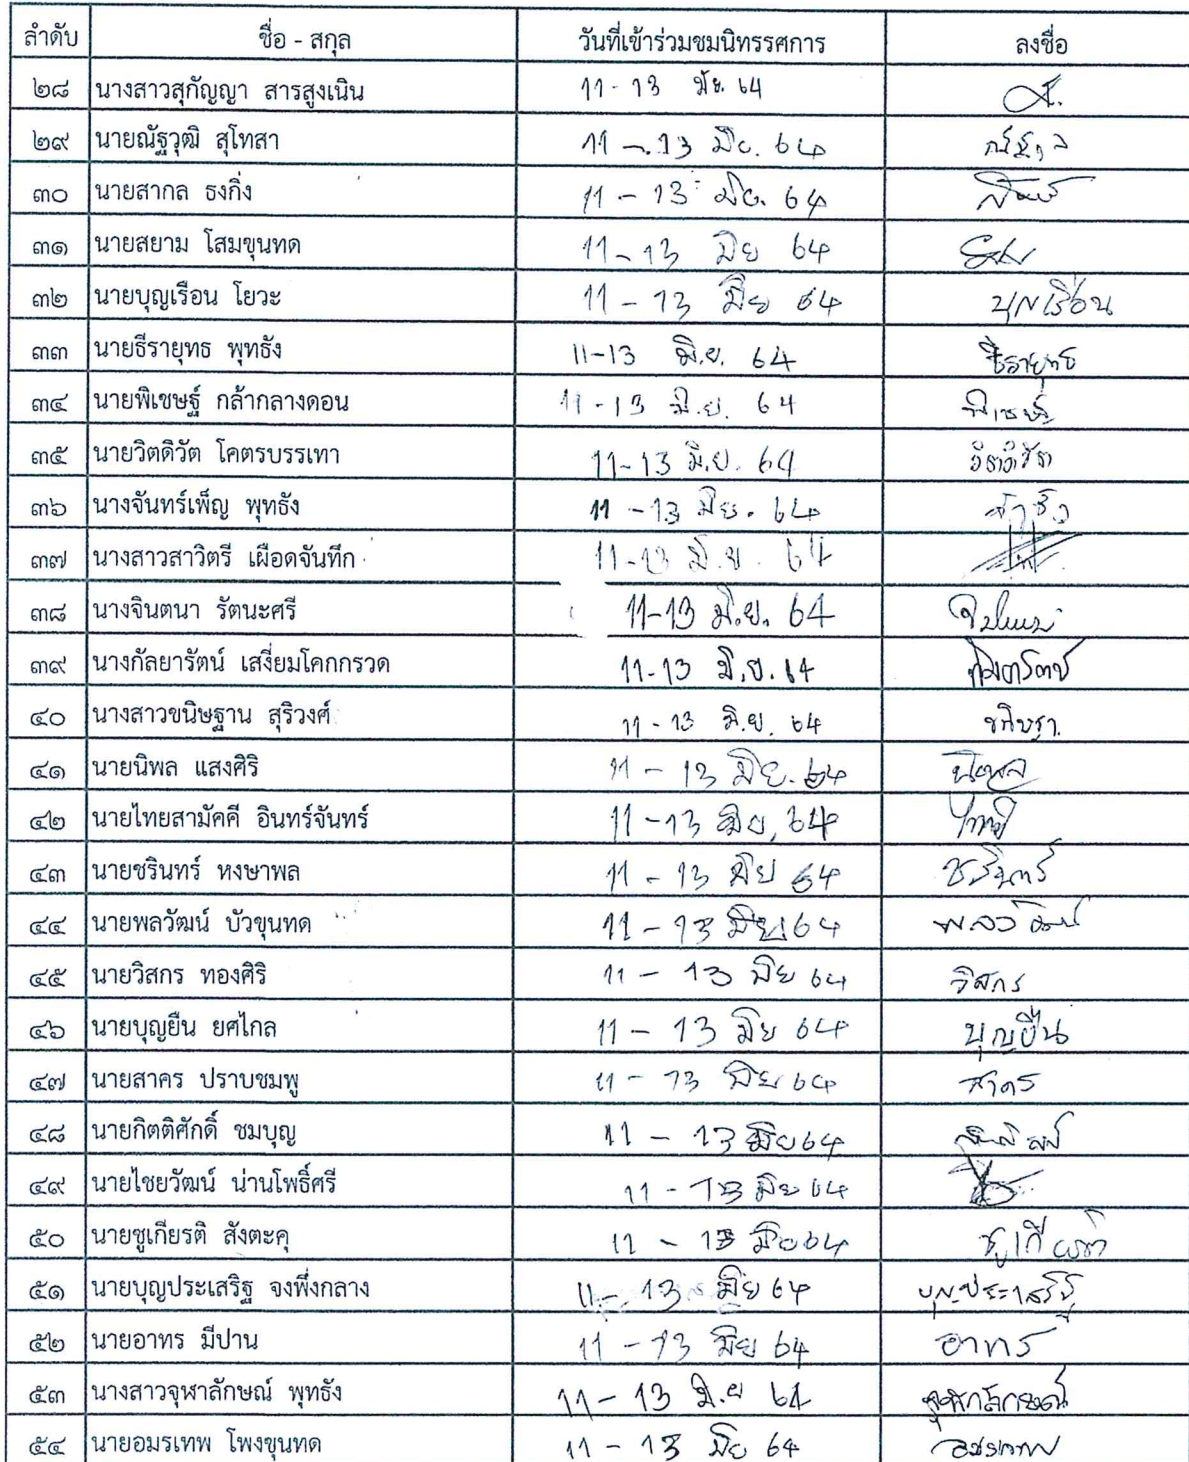 ลำดับ ชื่อ - สกุล วันที่เข้าร่วมชมนิทรรศการ ลงชื่อ
๒๘ นางสาวสุกัญญา สารสูงเนิน 11-13 มิย. 64 ส.
๒๙ นายณัฐวุฒิ สุโทสา 11 - 13 มิย. 64
๓๐ นายสากล ธงกิ่ง 11 - 13 มิย. 64
๓๑ นายสยาม โสมขุนทด 11 - 13 มิย 64
๓๒ นายบุญเรือน โยวะ 11 - 13 มิย 64 บุญเรือน
๓๓ นายธีรายุทธ พุทธัง 11-13 มิ.ย. 64 ธีรายุทธ
๓๔ นายพิเชษฐ์ กล้ากลางดอน 11-13 มิ.ย. 64 พิเชษฐ์
๓๕ นายวิตดิวัต โคตรบรรเทา 11-13 มิ.ย. 64
๓๖ นางจันทร์เพ็ญ พุทธัง 11 - 13 มิย. 64
๓๗ นางสาวสาวิตรี เผือดจันทึก 11-13 มิ.ย. 64
๓๘ นางจินตนา รัตนะศรี 11-13 มิ.ย. 64
๓๙ นางกัลยารัตน์ เสงี่ยมโคกกรวด 11-13 มิ.ย. 64
๔๐ นางสาวขนิษฐาน สุริวงศ์ 11 - 13 มิ.ย. 64 ขนิษฐา
๔๑ นายนิพล แสงศิริ 11 - 13 มิย. 64 นิพล
๔๒ นายไทยสามัคคี อินทร์จันทร์ 11 - 13 มิย. 64
๔๓ นายชรินทร์ หงษาพล 11 - 13 มิย 64 ชรินทร์
๔๔ นายพลวัฒน์ บัวขุนทด 11 - 13 มิย 64 พลวัฒน์
๔๕ นายวิสกร ทองศิริ 11 - 13 มิย 64 วิสกร
๔๖ นายบุญยืน ยศไกล 11 - 13 มิย 64 บุญยืน
๔๗ นายสาคร ปราบชมพู 11 - 13 มิย 64 สาคร
๔๘ นายกิตติศักดิ์ ชมบุญ 11 - 13 มิย 64
๔๙ นายไชยวัฒน์ น่านโพธิ์ศรี 11 - 13 มิย 64
๕๐ นายชูเกียรติ สังตะคุ 11 - 13 มิย 64 ชูเกียรติ
๕๑ นายบุญประเสริฐ จงพึ่งกลาง 11 - 13 มิย 64 บุญประเสริฐ
๕๒ นายอาทร มีปาน 11 - 13 มิย 64 อาทร
๕๓ นางสาวจุฬาลักษณ์ พุทธัง 11 - 13 มิ.ย 64 จุฬาลักษณ์
๕๔ นายอมรเทพ โพงขุนทด 11 - 13 มิย 64 อมรเทพ